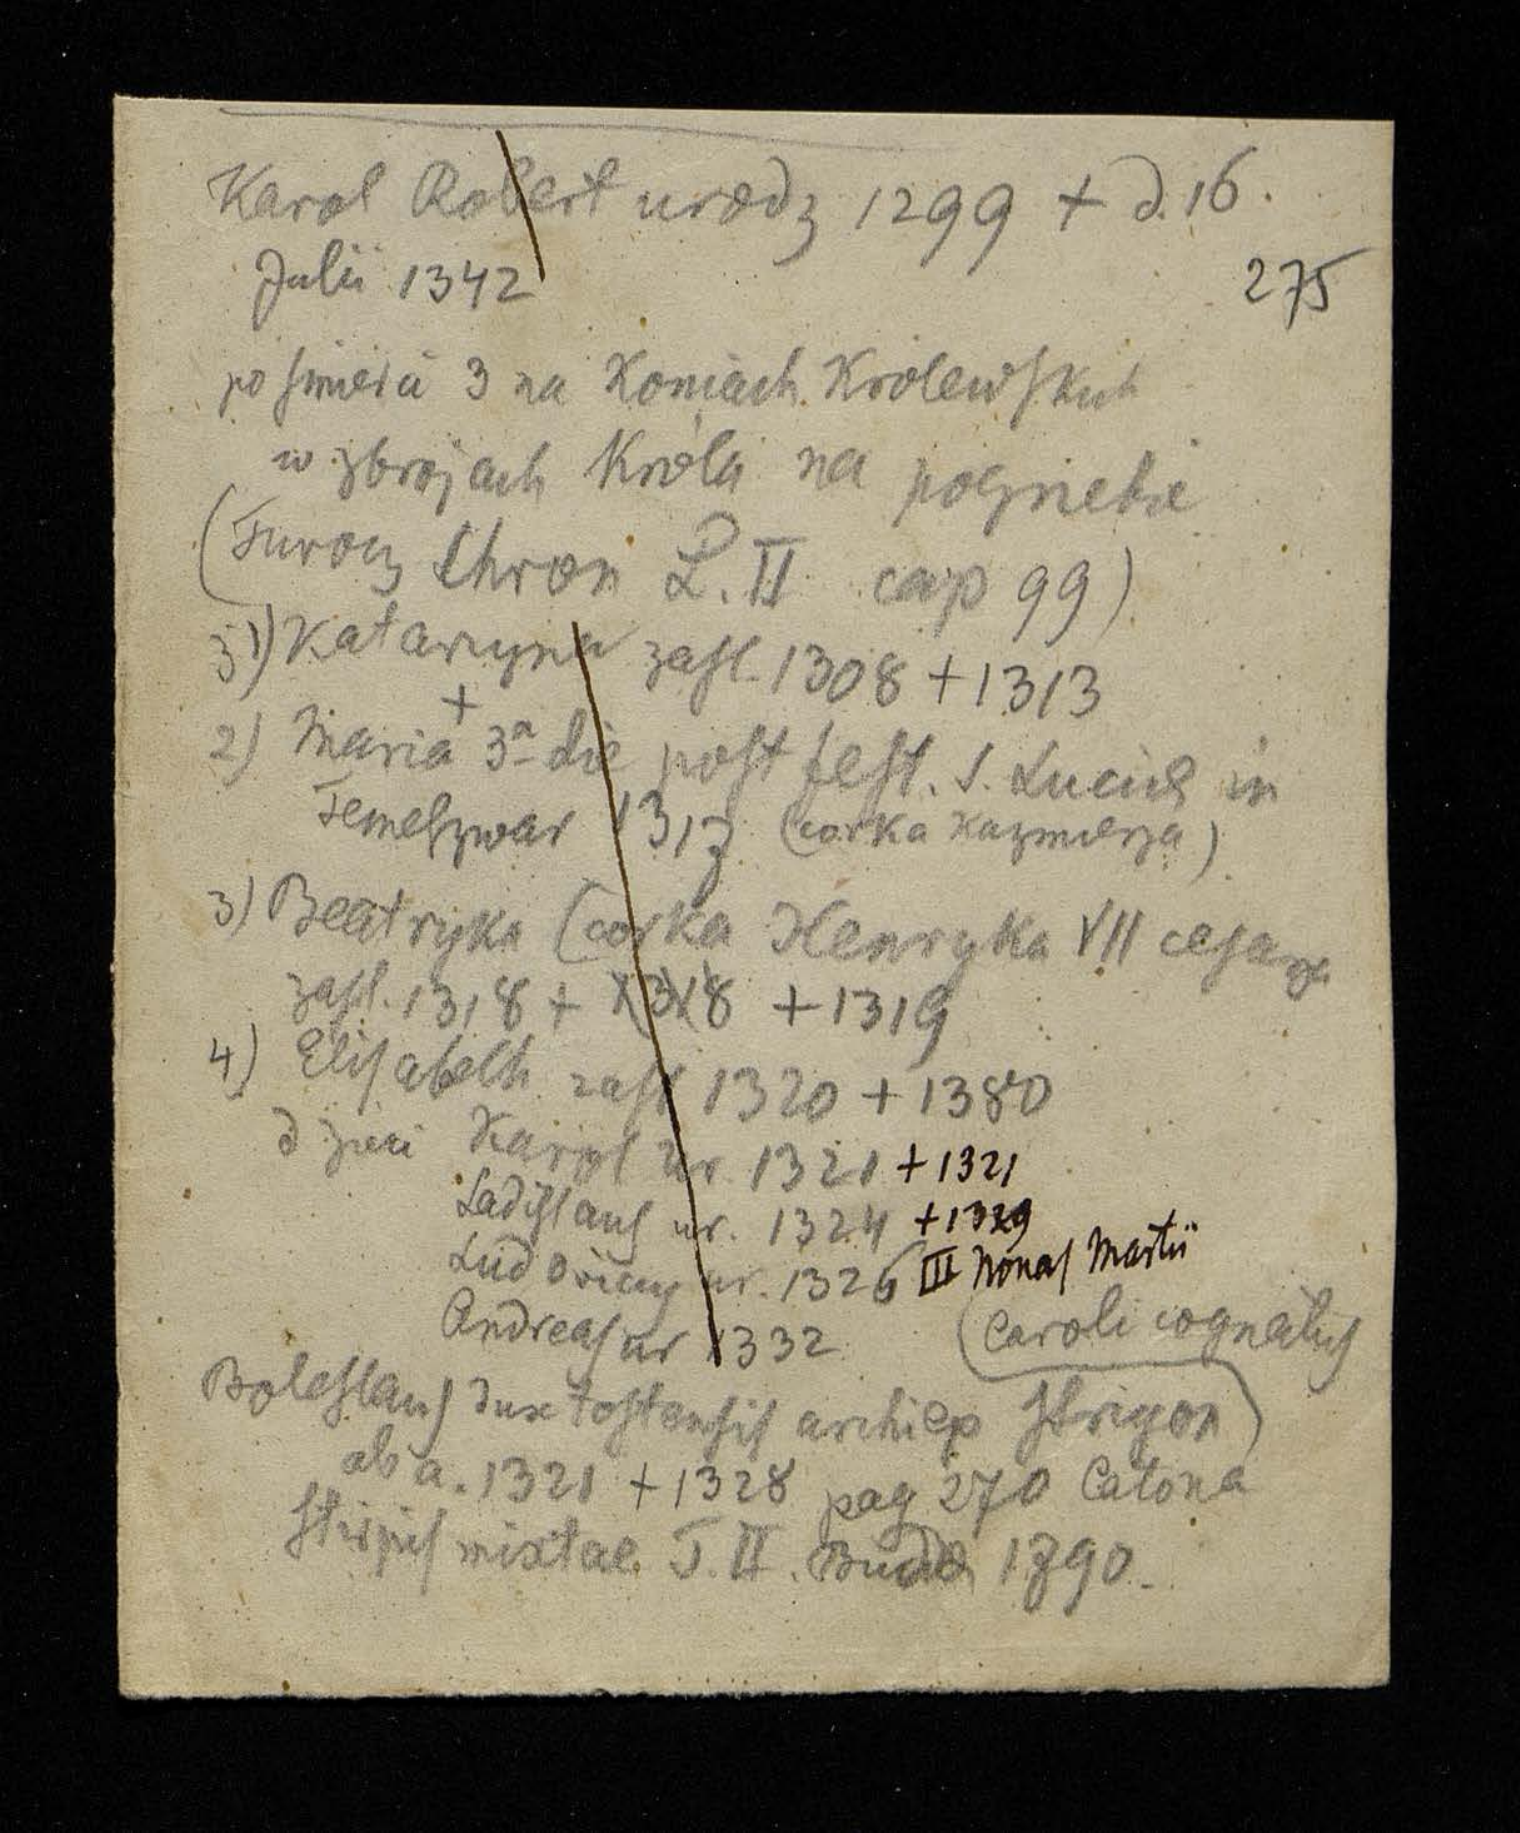 Karol Robert urodz 1299 + d. 16.
Julii 1342
275
po smierci 3 na Koniach Krolewskich
w zbrojach Króla na pogrzebie
(Turocz Chron L. II cap 99)
1) Katarzyna zasl. 1308 + 1313
2) Maria + 3ª die post fest. S. Luciae in
Temeszwar 1317 (corka Kazmierza)
3) Beatryka (corka Henryka VII cesarza
zasl. 1318 + 1318 + 1319
4) Elisabeth zasl 1320 + 1380
dzieci Karol ur. 1321 + 1321
Ladislaus ur. 1324 + 1329
Ludovicus ur. 1326 III Nonas Martii
Andreas ur 1332
(Caroli cognatus)
Boleslaus dux tostensis archiep Strigon
ab a. 1321 + 1328 pag 270 Catona
Stirpis mixtae T. II. Budae 1890.